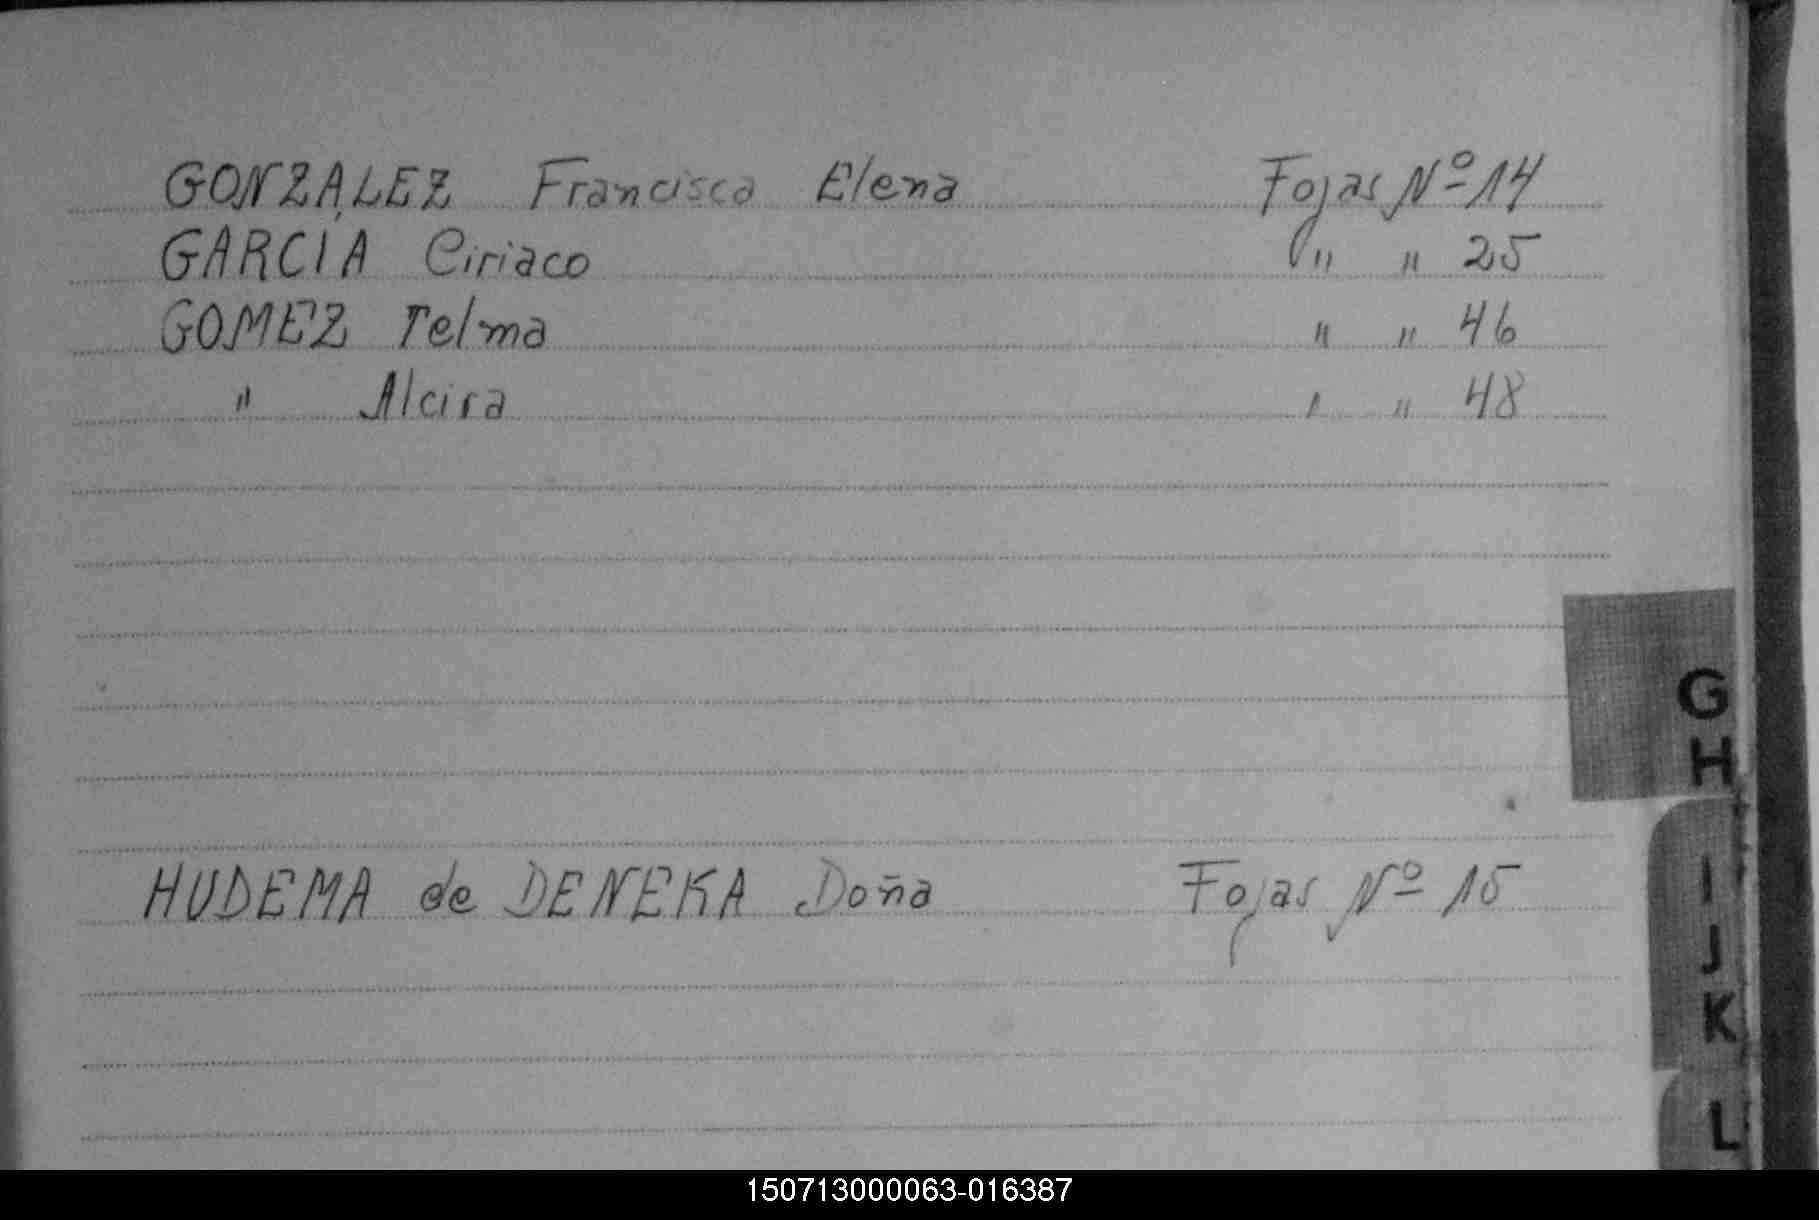 GONZALEZ Francisca Elena Fojas Nº 14
GARCIA Ciriaco " " 25
GOMEZ Telma " " 46
" Alcira " " 48
G
H
HUDEMA de DENEKA Doña Fojas Nº 15
I
J
K
L
150713000063-016387